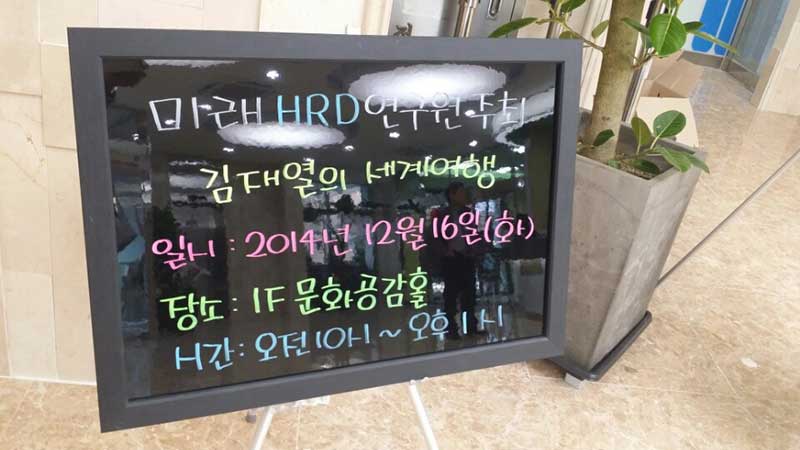 미래 HRD연구원 주최
김재열의 세계여행
일시 : 2014년 12월 16일(화)
장소 : 1F 문화공감홀
시간 : 오전10시 ~ 오후 1시